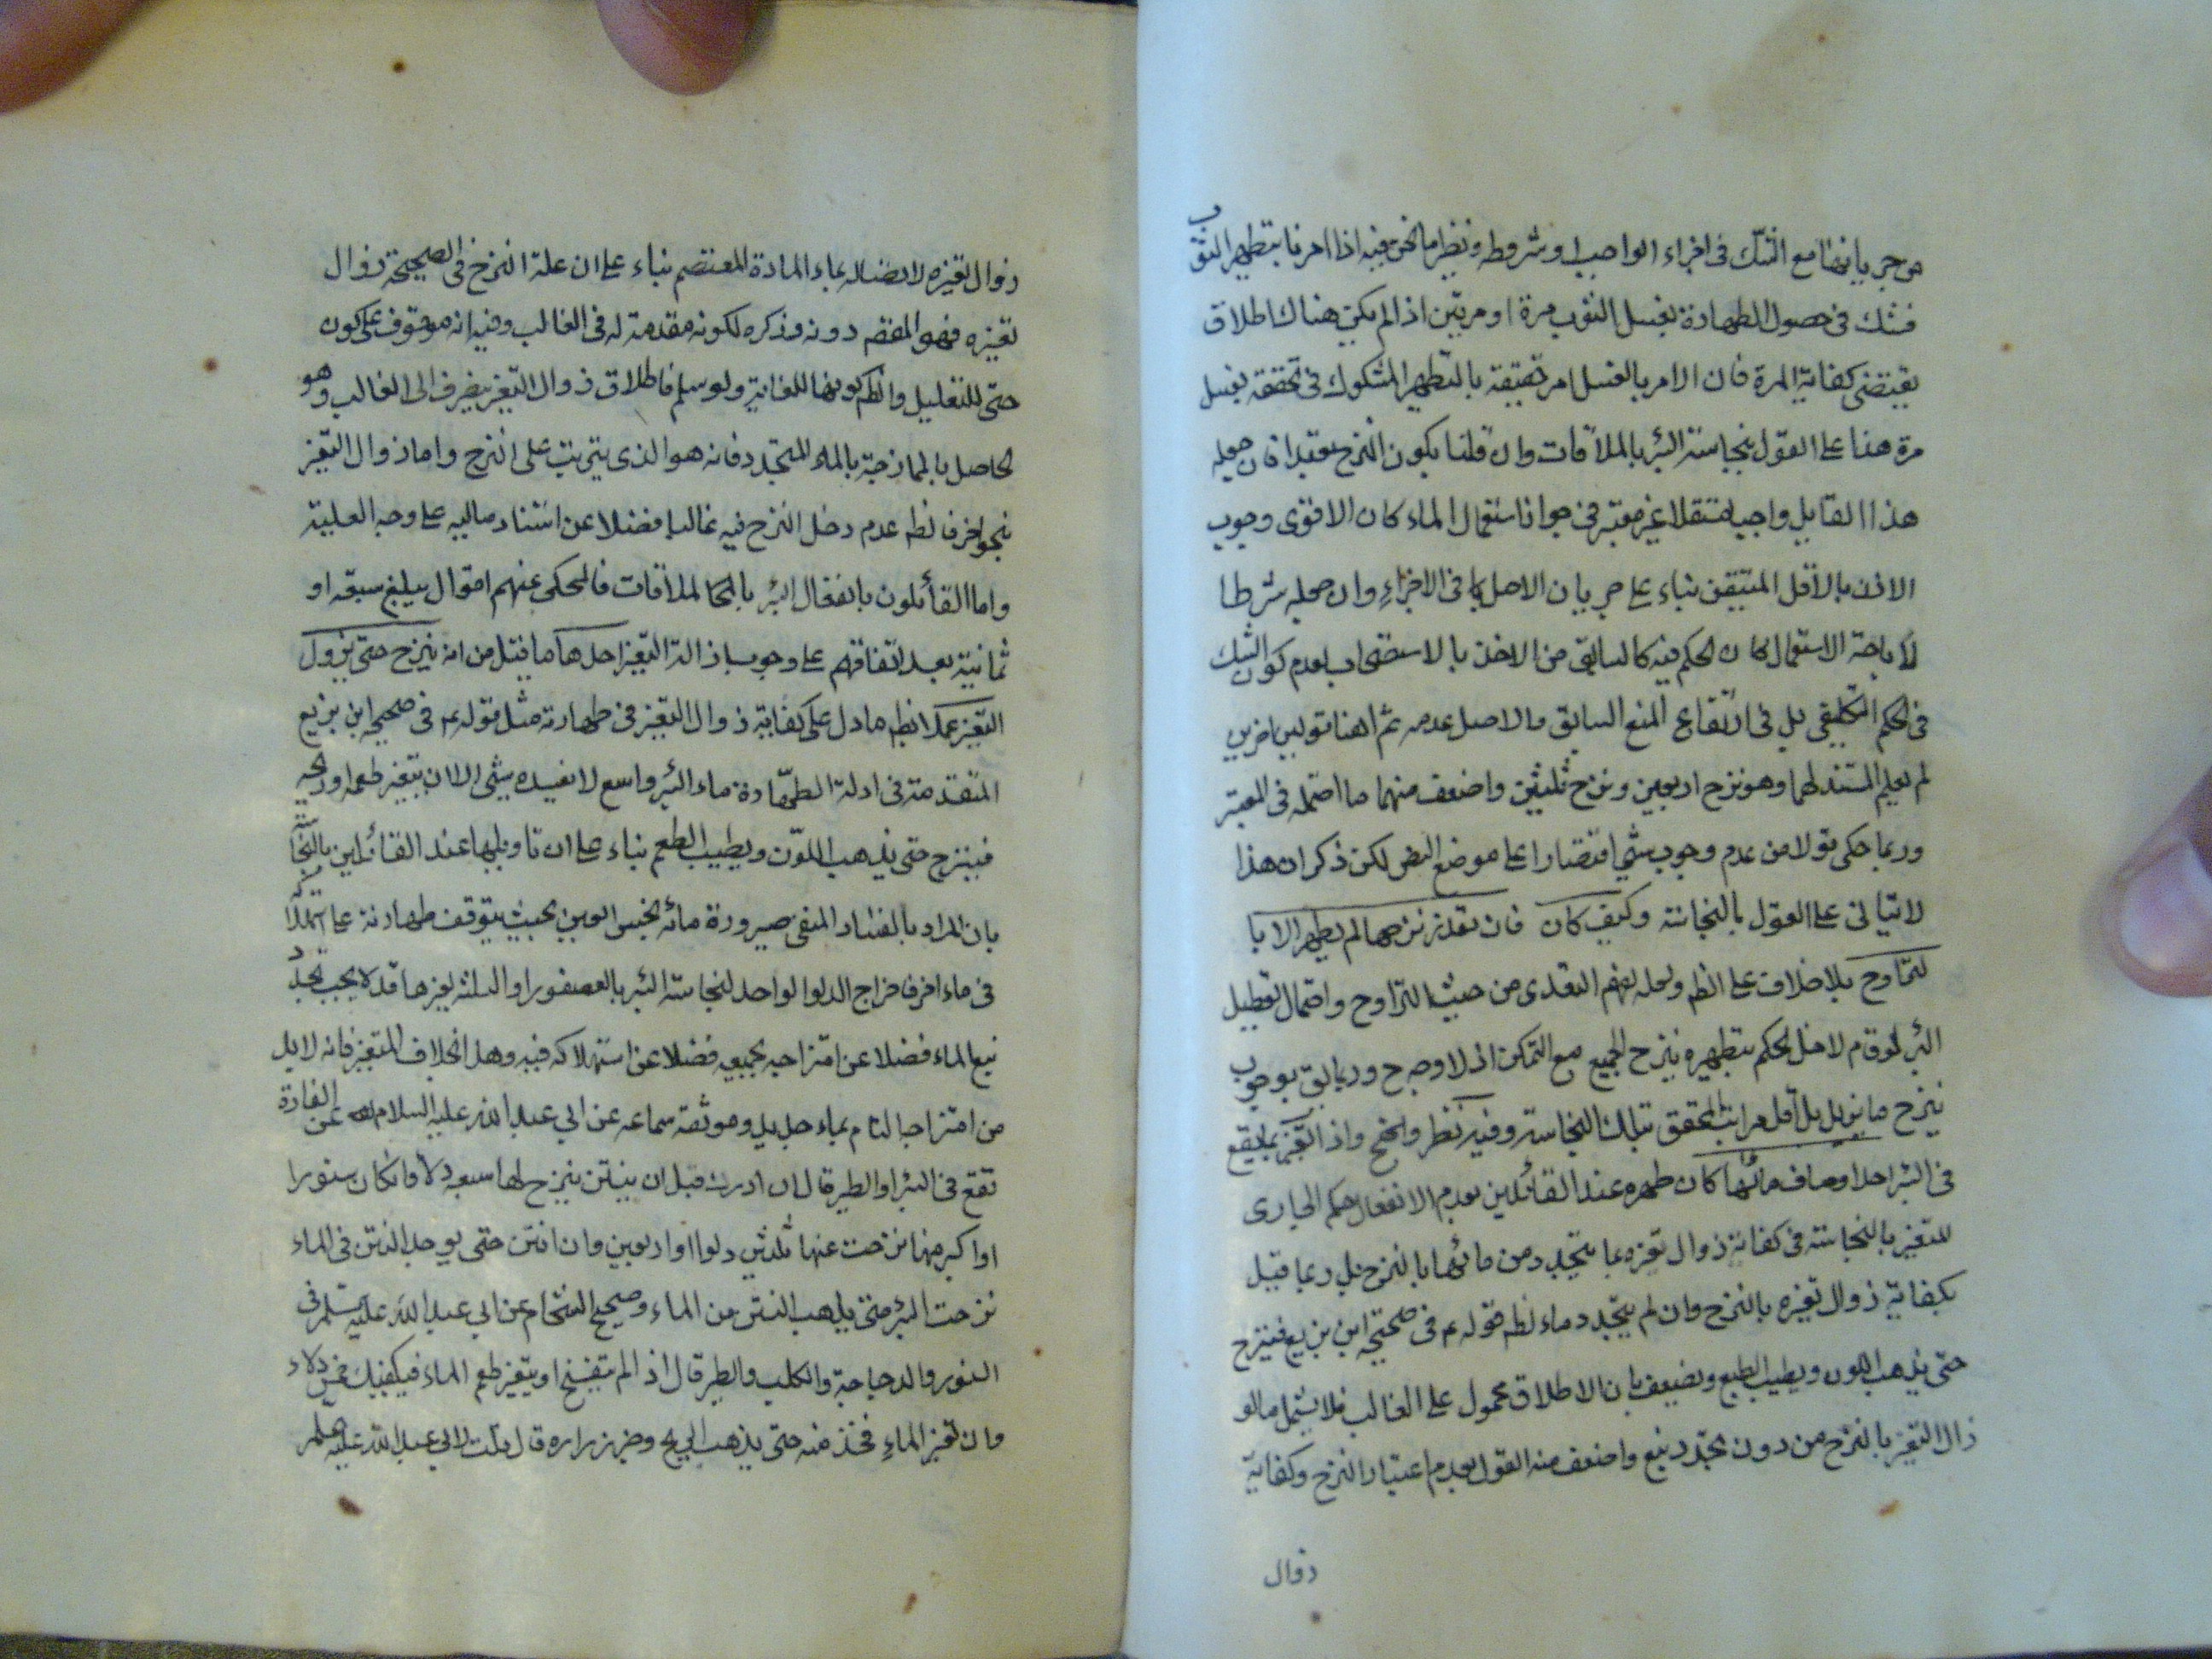 من جريانها مع الشك في اجزاء الواجب او شروطه ونظير ما نحن فيه اذا امرنا بتطهير الثوب
فشك في حصول الطهارة بغسل الثوب مرة او مرتين اذ لم يكن هناك اطلاق
يقتضى كفاية المرة فان الامر بالغسل امر حقيقة بالتطهير المشكوك في تحققه بغسل
مرة هذا على القول بنجاسة البئر بالملاقات وان قلنا بكون النزح تعبدا فان جعله
هذا القايل واجبا مستقلا غير معتبر في جواز استعمال الماء كان الاقوى وجوب
الاخذ بالاقل المتيقن بناء على جريان الاصل في الاجزاء وان جعله شرطا
لاباحة الاستعمال كان الحكم فيه كالسابق من الاخذ بالاستصحاب لعدم كون الشك
في الحكم التكليفي بل في ارتفاع المنع السابق والاصل عدمه ثم ان هنا قولين اخرين
لم يعلم المستند لهما وهو نزح اربعين ونزح ثلثين واضعف منهما ما احتمله في المعتبر
وربما حكى قولا من عدم وجوب شئ اقتصارا على موضع النص لكن ذكر ان هذا
لا يتاتى على القول بالنجاسة وكيف كان فان تعذر نزحها لم يطهر الا با
لتراوح بلا خلاف على الظم ولعله لفهم التعدى من حيث التراوح واحتمال تعطيل
البئر لو قام لاجل الحكم بتطهيره بنزح الجميع مع التمكن اذ لا وجه وربما يق بوجوب
نزح ما يزيل بل اقل مراتب المحقق بتلك النجاسة وفيه نظر واضح واذا تغير بما يقع
في البئر احد اوصاف مائها كان طهره عند القائلين بعدم الانفعال حكم الجارى
المتغير بالنجاسة في كفاية زوال تغيره بما يتجدد من مائها بالنزح بل ربما قيل
بكفاية زوال تغيره بالنزح وان لم يتجدد ماء لظم قوله ع في صحيحة ابن بزيع فينزح
حتى يذهب اللون ويطيب الطعم ويضعف بان الاطلاق محمول على الغالب فلا يشمل ما لو
زال التغير بالنزح من دون تجدد نبع واضعف منه القول بعدم اعتبار النزح وكفاية
زوال
زوال تغيره لاتصاله بماء المادة المعتصم بناء على ان علة النزح في الصحيحة زوال
تغيره فهو المقصم دونه وذكره لكونه مقدمة له في الغالب وفيه انه موقوف على كون
حتى للتعليل والظم كونها للغاية ولو سلم فاطلاق زوال التغير ينصرف الى الغالب وهو
الحاصل بالممازجة بالماء المتجدد فانه هو الذى يترتب على النزح واما زوال التغير
بنحو اخر فالظم عدم دخل النزح فيه غالبا فضلا عن استناده اليه على وجه العلية
واما القائلون بانفعال البئر بالملاقات فالمحكى عنهم اقوال يبلغ سبعة او
ثمانية بعد اتفاقهم على وجوب ازالة التغير احدها ما قيل من انه ينزح حتى يزول
التغير عملا بظم ما دل على كفاية زوال التغير في طهارته مثل قوله ع في صحيحة ابن بزيع
المتقدمة في ادلة الطهارة ماء البئر واسع لا يفسده شئ الا ان يتغير طعمه او ريحه
فينزح حتى يذهب اللون ويطيب الطعم بناء على ان تاويلها عند القائلين بالنجاسة
بان المراد بالفساد المنفى صيرورة مائه كنجس العين بحيث يتوقف طهارته على استهلاكه
في ماء اخر فاخراج الدلو الواحد لنجاسة البئر بالعصفور او الثلثة لغيرها قد لا يجب تجدد
نبع الماء فضلا عن امتزاجه بجميعه فضلا عن استهلاكه فيه وهذا بخلاف المتغير فانه لا بد
من امتزاجه التام بماء جديد وموثقة سماعة عن ابي عبد الله عليه السلام عن الفارة
تقع في البئر او الطير قال ان ادركته قبل ان ينتن ينزح لها سبع دلاء وان كان سنورا
او اكبر منها نزحت عنها ثلثين دلوا او اربعين وان انتن حتى يوجد النتن في الماء
نزحت البئر حتى يذهب النتن من الماء وصحيح الشحام عن ابي عبد الله عليه سلم في
السنور والدجاجة والكلب والطير قال اذا لم يتفسخ او يتغير طعم الماء فيكفيك خمس دلاء
وان تغير الماء فخذ منه حتى يذهب الريح وخبر زرارة قال قلت لابي عبد الله عليه سلم